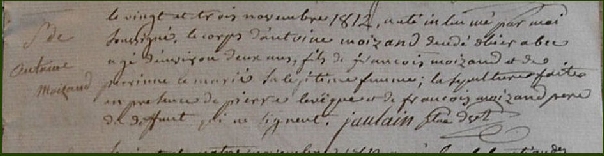 Sre de
antoine
Moizand
le vingt et trois novembre 1812, a été inhumé par moi
soussigné, le corps d'antoine moizand décédé hier avec
agé d'environ deux ans, fils de francois moizand et de
perrinne le marié sa legitime femme; la sepulture faite
en presence de pierre levêque et de francois moizand pere
du deffunt qui ne signent. jaulain